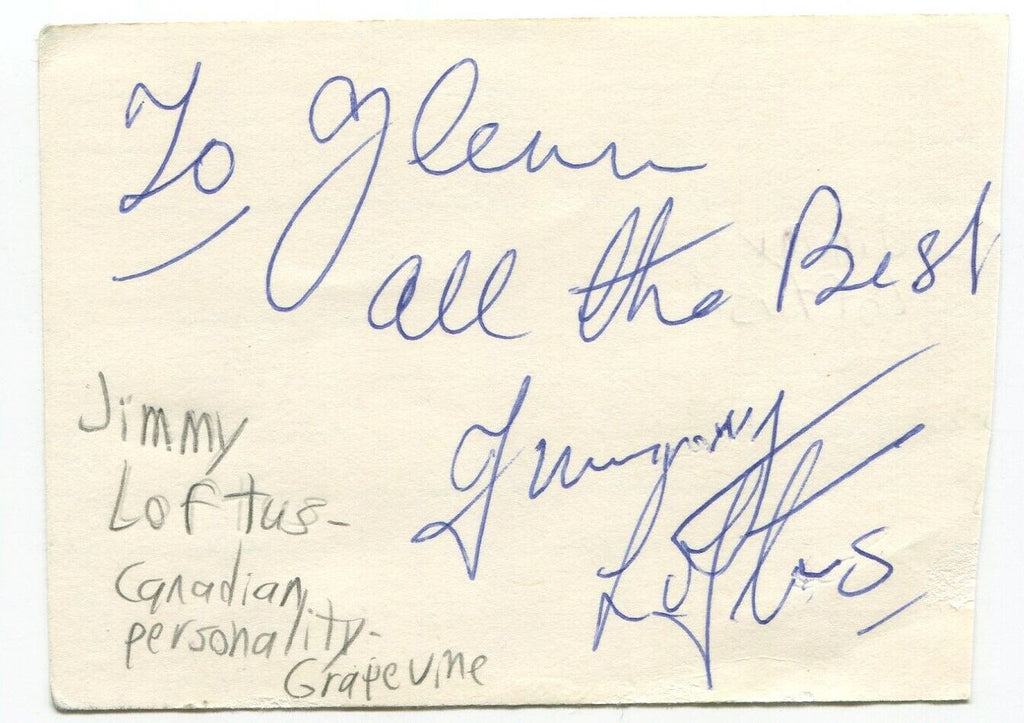 To Glenn
all the Best
Jimmy
Loftus
Jimmy
Loftus-
Canadian
personality-
Grapevine